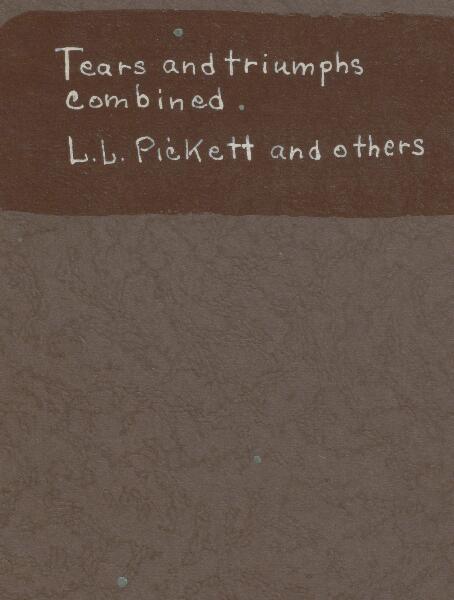 Tears and triumphs
combined.
L.L. Pickett and others